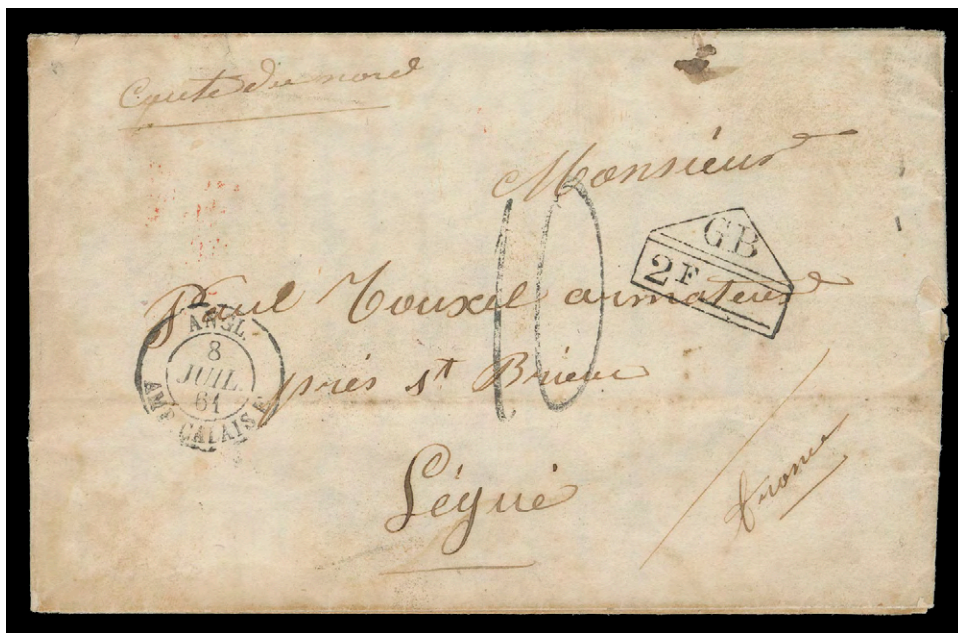 Coute du nord
Monsieur
GB
2F
10
Paul Touxel armateur
ANGL.
8
JUIL.
61
AMB. CALAIS
près st Brieux
Légué
france